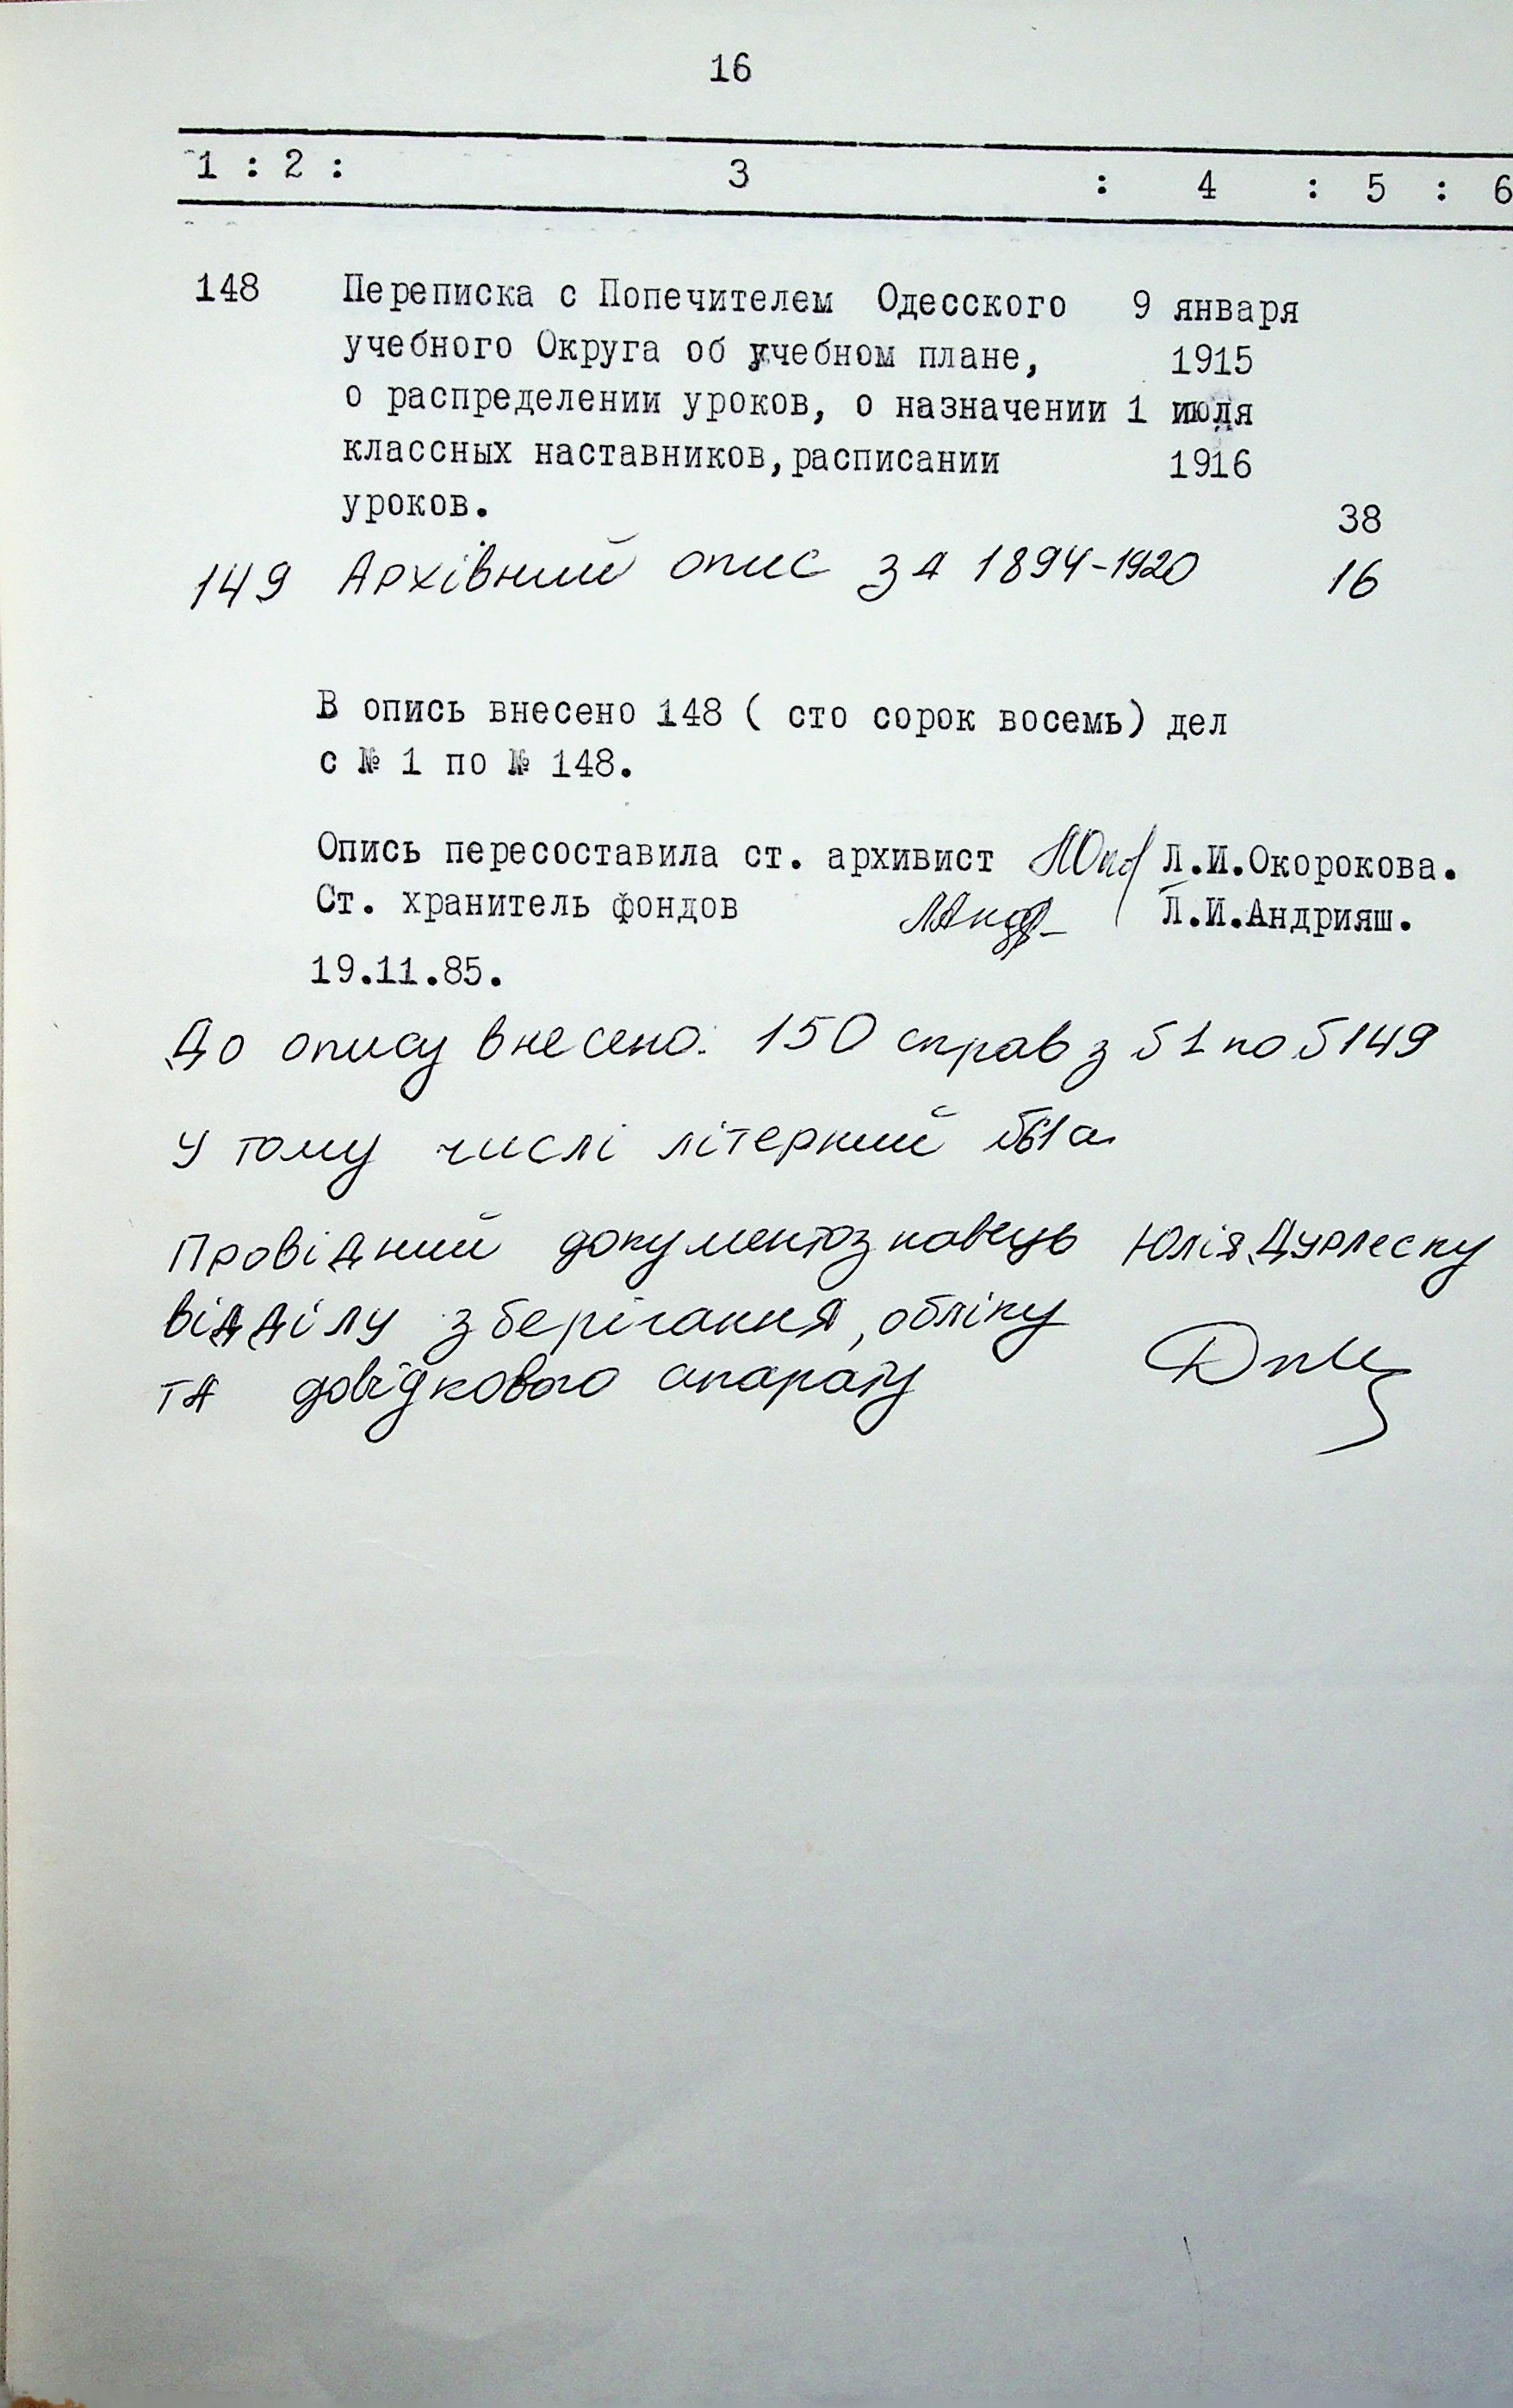 16
1 : 2 : 3 : 4 : 5 : 6
148 Переписка с Попечителем Одесского 9 января
учебного Округа об учебном плане, 1915
о распределении уроков, о назначении 1 июля
классных наставников, расписании 1916
уроков. 38
149 Архівний опис за 1894-1920 16
В опись внесено 148 ( сто сорок восемь) дел
с № 1 по № 148.
Опись пересоставила ст. архивист Л.И.Окорокова.
Ст. хранитель фондов Л.И.Андрияш.
19.11.85.
До опису внесено: 150 справ з №1 по №149
У тому числі літерний №61а
Провідний документознавець Юлія Дурлеску
відділу зберігання, обліку
та довідкового апарату